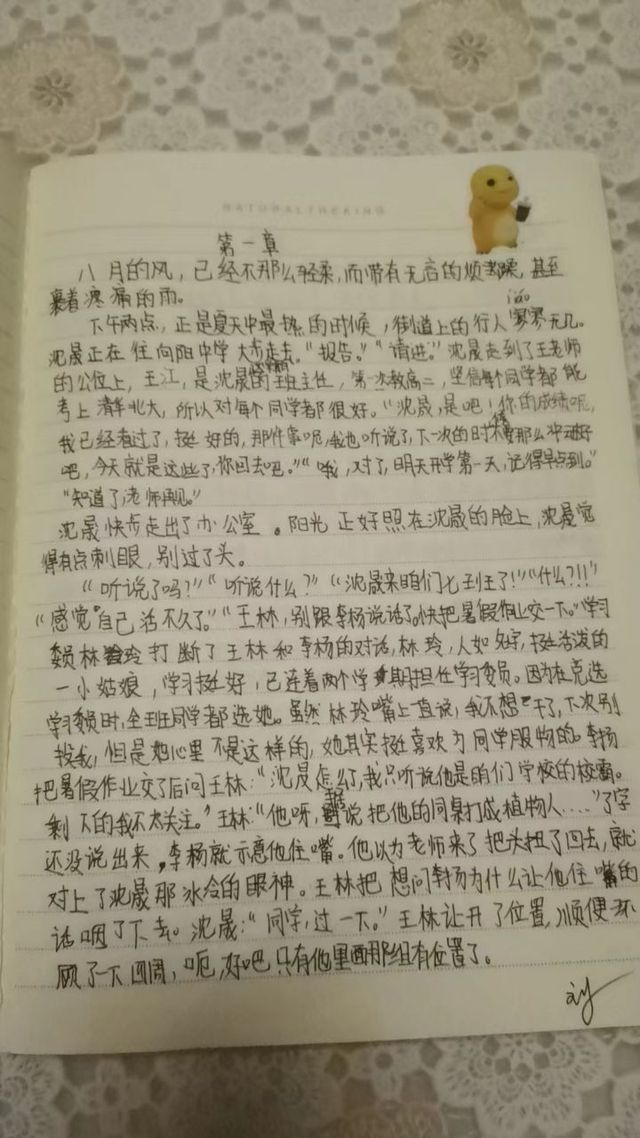 NATIONALTHEKING
第一章
八月的风，已经不那么轻柔，而带有无言的烦躁，甚至
裹着滚烫的雨。
下午两点，正是夏天中最热的时候，街道上的行人寥寥无几。
liáo
沈晟正在往向阳中学大步走去。“报告。”“请进。”沈晟走到了王老师
的公位上，王江，是沈晟的班主任，第一次教高二，坚信每个同学都能
考上清华北大，所以对每个同学都很好。“沈晟，是吧！你的成绩呢，
我已经看过了，挺好的，那件事呢，我也听说了，下一次的时候不要那么冲动好
吧，今天就是这些了，你回去吧。”“哦，对了，明天开学第一天，记得早点到。”
“知道了，老师再见。”
沈晟快步走出了办公室。阳光正好照在沈晟的脸上，沈晟觉
得有点刺眼，别过了头。
“听说了吗？”“听说什么？”“沈晟来咱们七班了！”“什么？！！”
“感觉自己活不久了。”“王林，别跟李杨说话了。快把暑假作业交一下。”学习
委员林玲打断了王林和李杨的对话，林玲，人如名字，挺活泼的
一小姑娘，学习挺好，已连着两个学期担任学习委员。因为在竞选
学习委员时，全班同学都选她。虽然林玲嘴上直说，我不想干了，下次别
找我，但是她心里不是这样的，她其实挺喜欢为同学服物的。李杨
把暑假作业交了后问王林：“沈晟怎么了，我只听说他是咱们学校的校霸。
剩下的我不太关注。”王林：“他呀，据说把他的同桌打成植物人……”了字
还没说出来，李杨就示意他住嘴。他以为老师来了把头扭了回去，就
对上了沈晟那冰冷的眼神。王林把想问李杨为什么让他住嘴的
话咽了下去。沈晟：“同学，过一下。”王林让开了位置，顺便环
顾了一下四周，呃，好吧只有他里面那组有位置了。